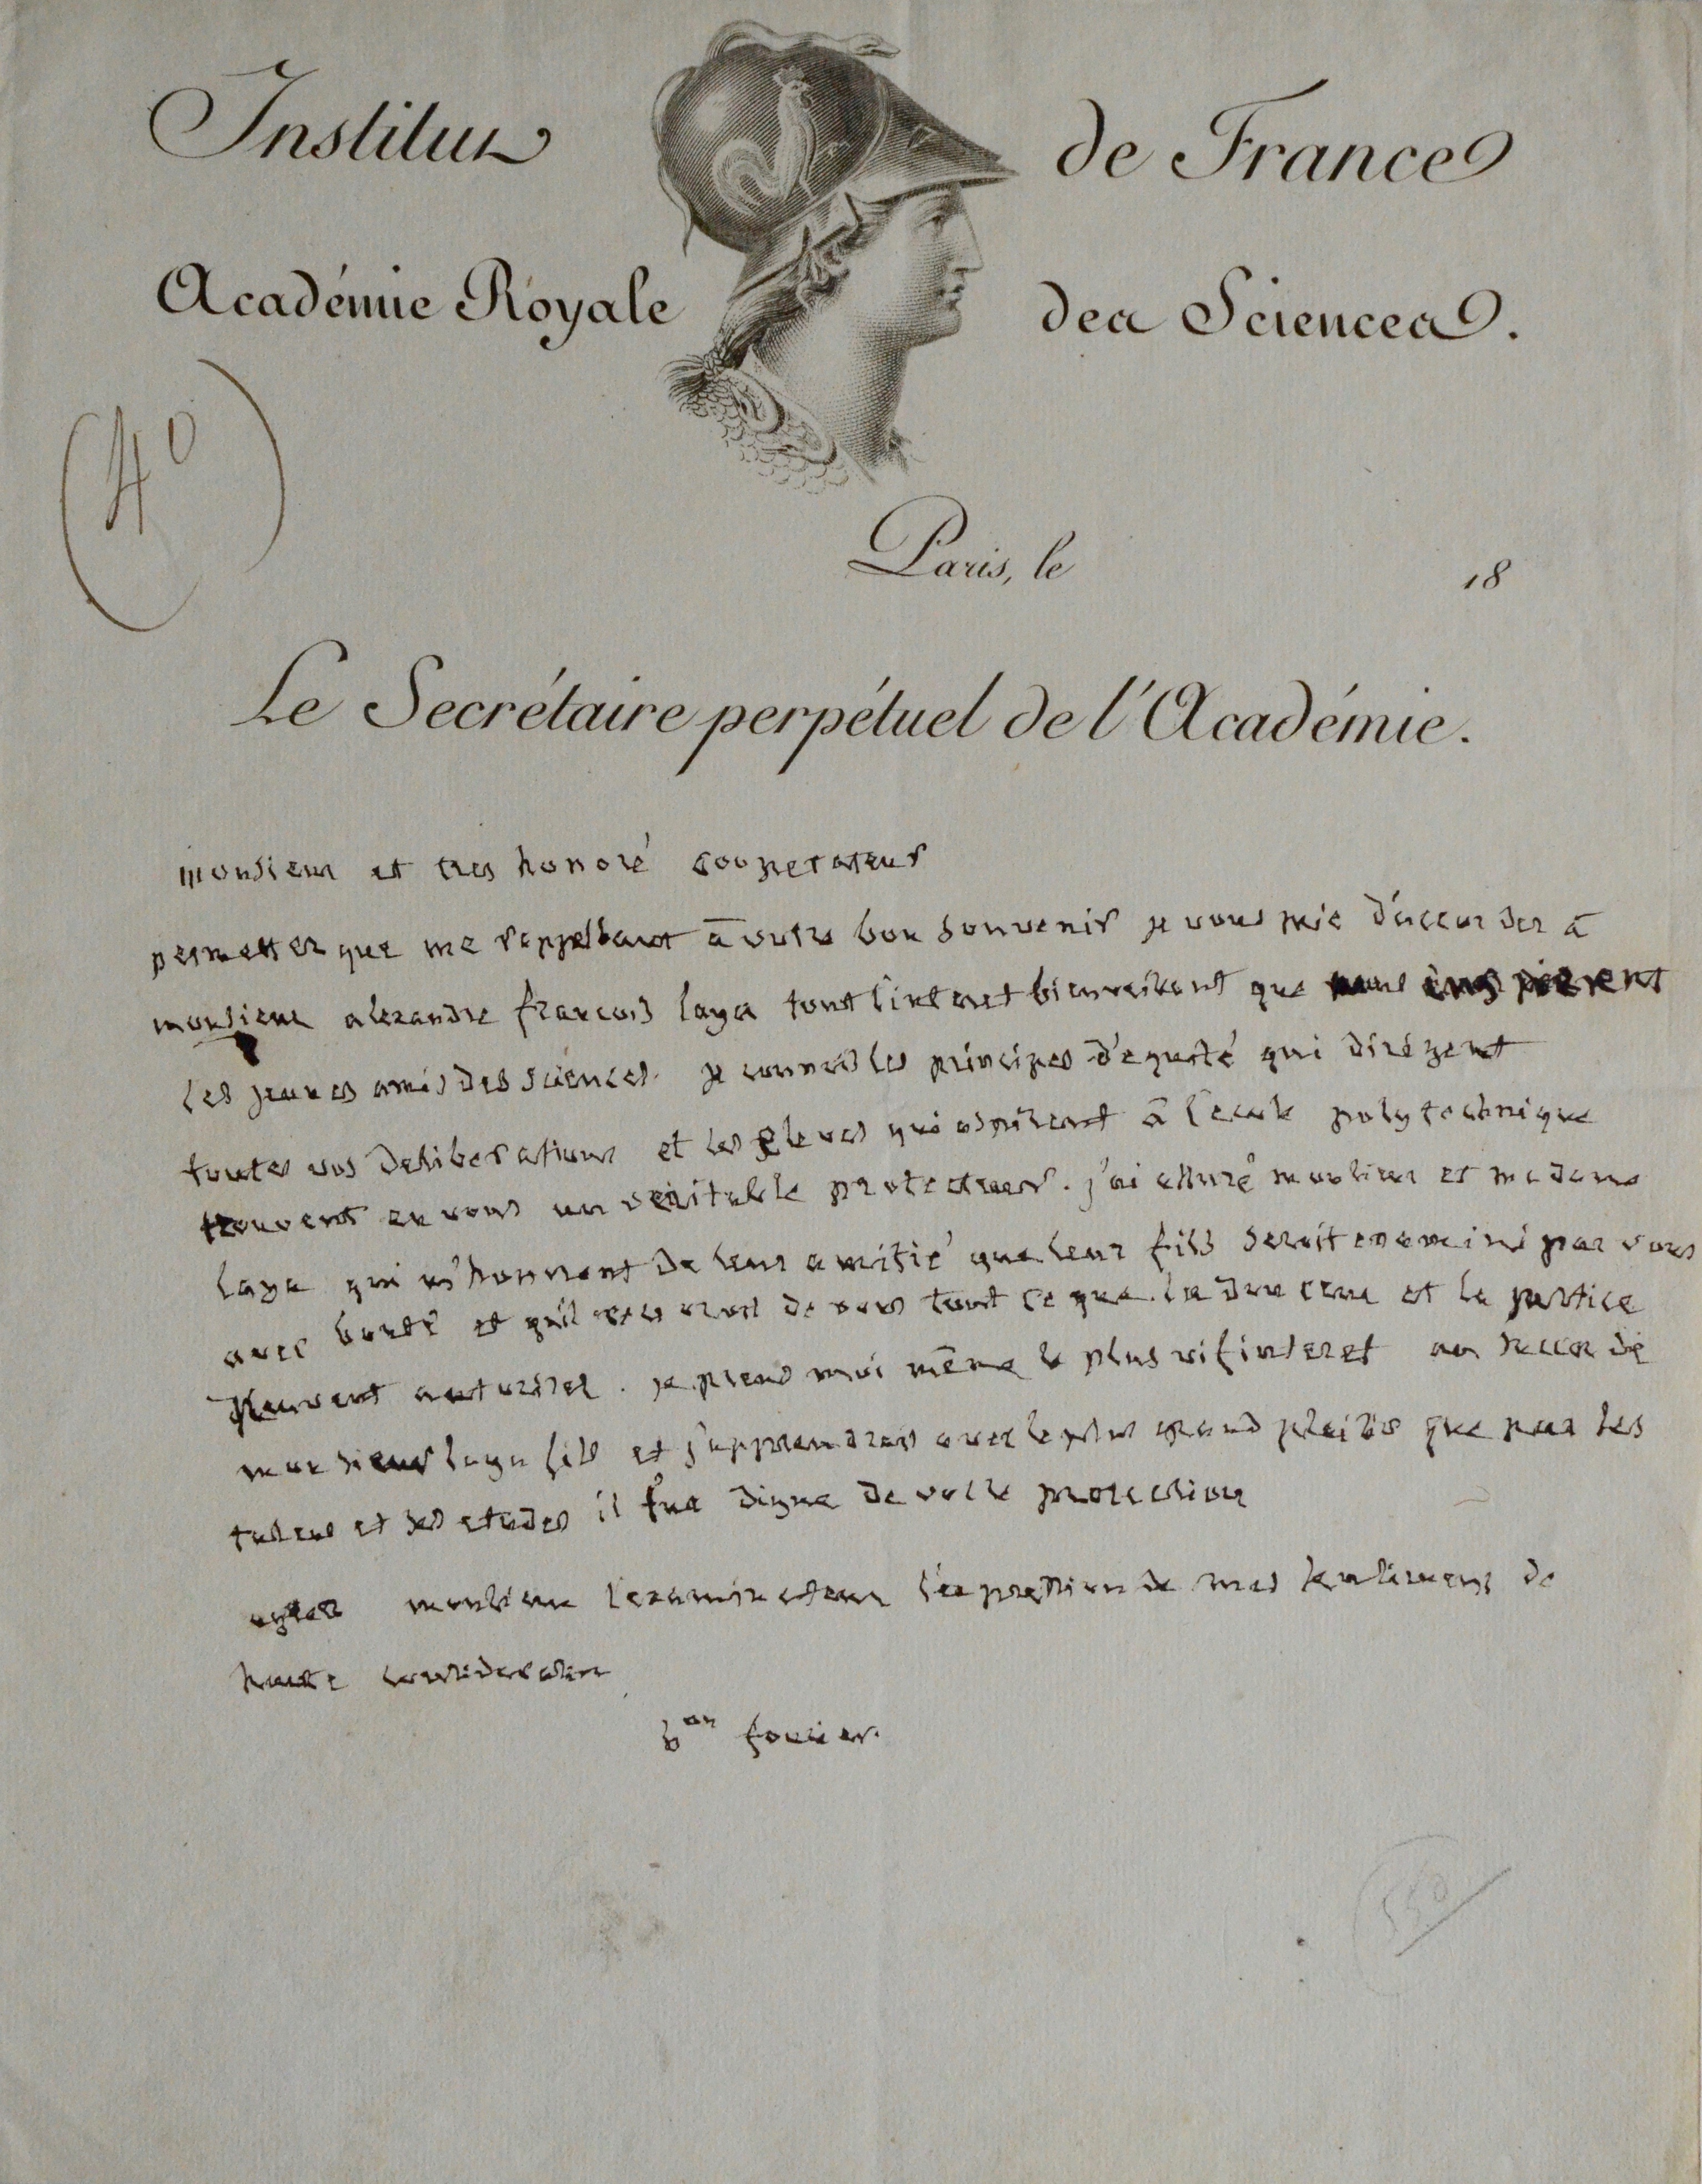 Institut de France
Académie Royale des Sciences.
(4°)
Paris, le 18
Le Secrétaire perpétuel de l'Académie.
monsieur et tres honoré cooperateur
permettez que me rappellant à votre bon souvenir je vous prie d'accorder à
monsieur alexandre francois laya tout l'interet bienveillant que vous inspirent
les jeunes amis des sciences. je connais les principes d'equité qui dirigent
toutes vos deliberations et les eleves qui aspirent à l'ecole polytechnique
trouvent en vous un veritable protecteur. j'ai assuré monsieur et madame
laya qui m'honnorent de leur amitié que leur fils serait examiné par vous
avec bonté et qu'il recevroit de vous tout ce que la douceur et la justice
peuvent autoriser. je prens moi même le plus vif interet au succes de
monsieur laya fils et j'apprendrais avec le plus grand plaisir que par ses
talens et ses etudes il fut digne de votre protection
agréez monsieur l'examinateur l'expression de mes sentimens de
haute consideration
b^on fourier.
550